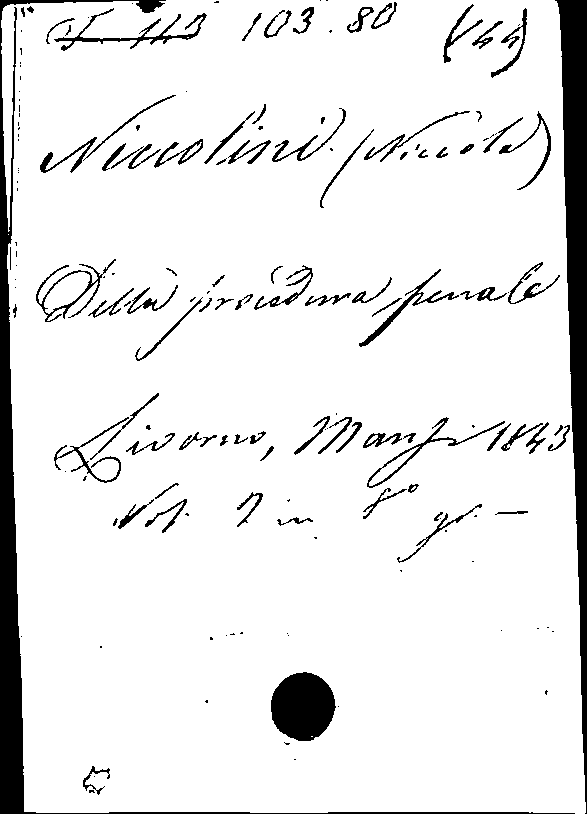 103.80 (144)
Niccolini (Niccola)
Della procedura penale
Livorno, Manzi 1843
Vol. 2 in 8º gr. —